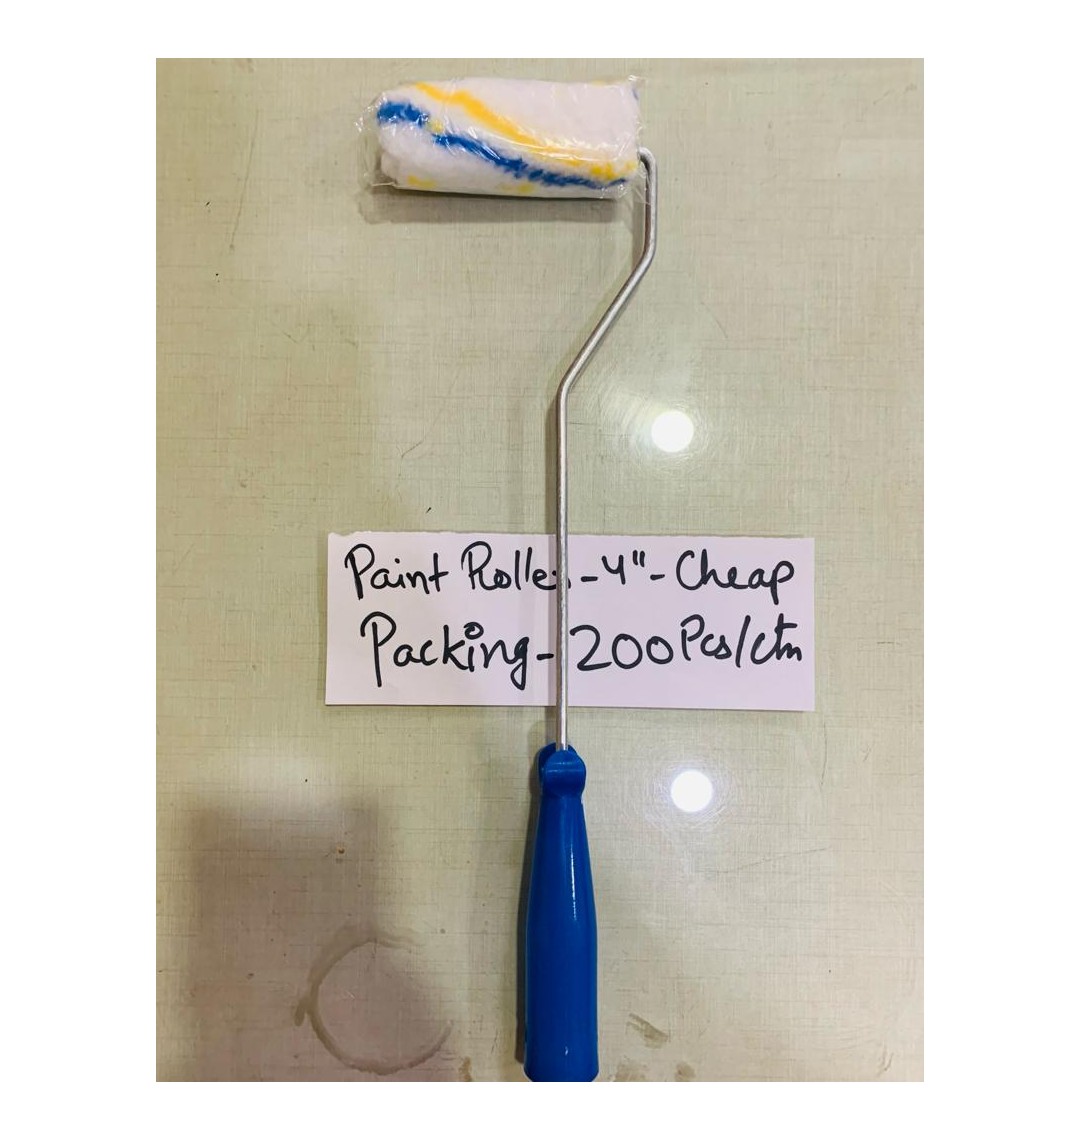 Paint Roller - 4" - Cheap
Packing - 200 Pcs/ctn